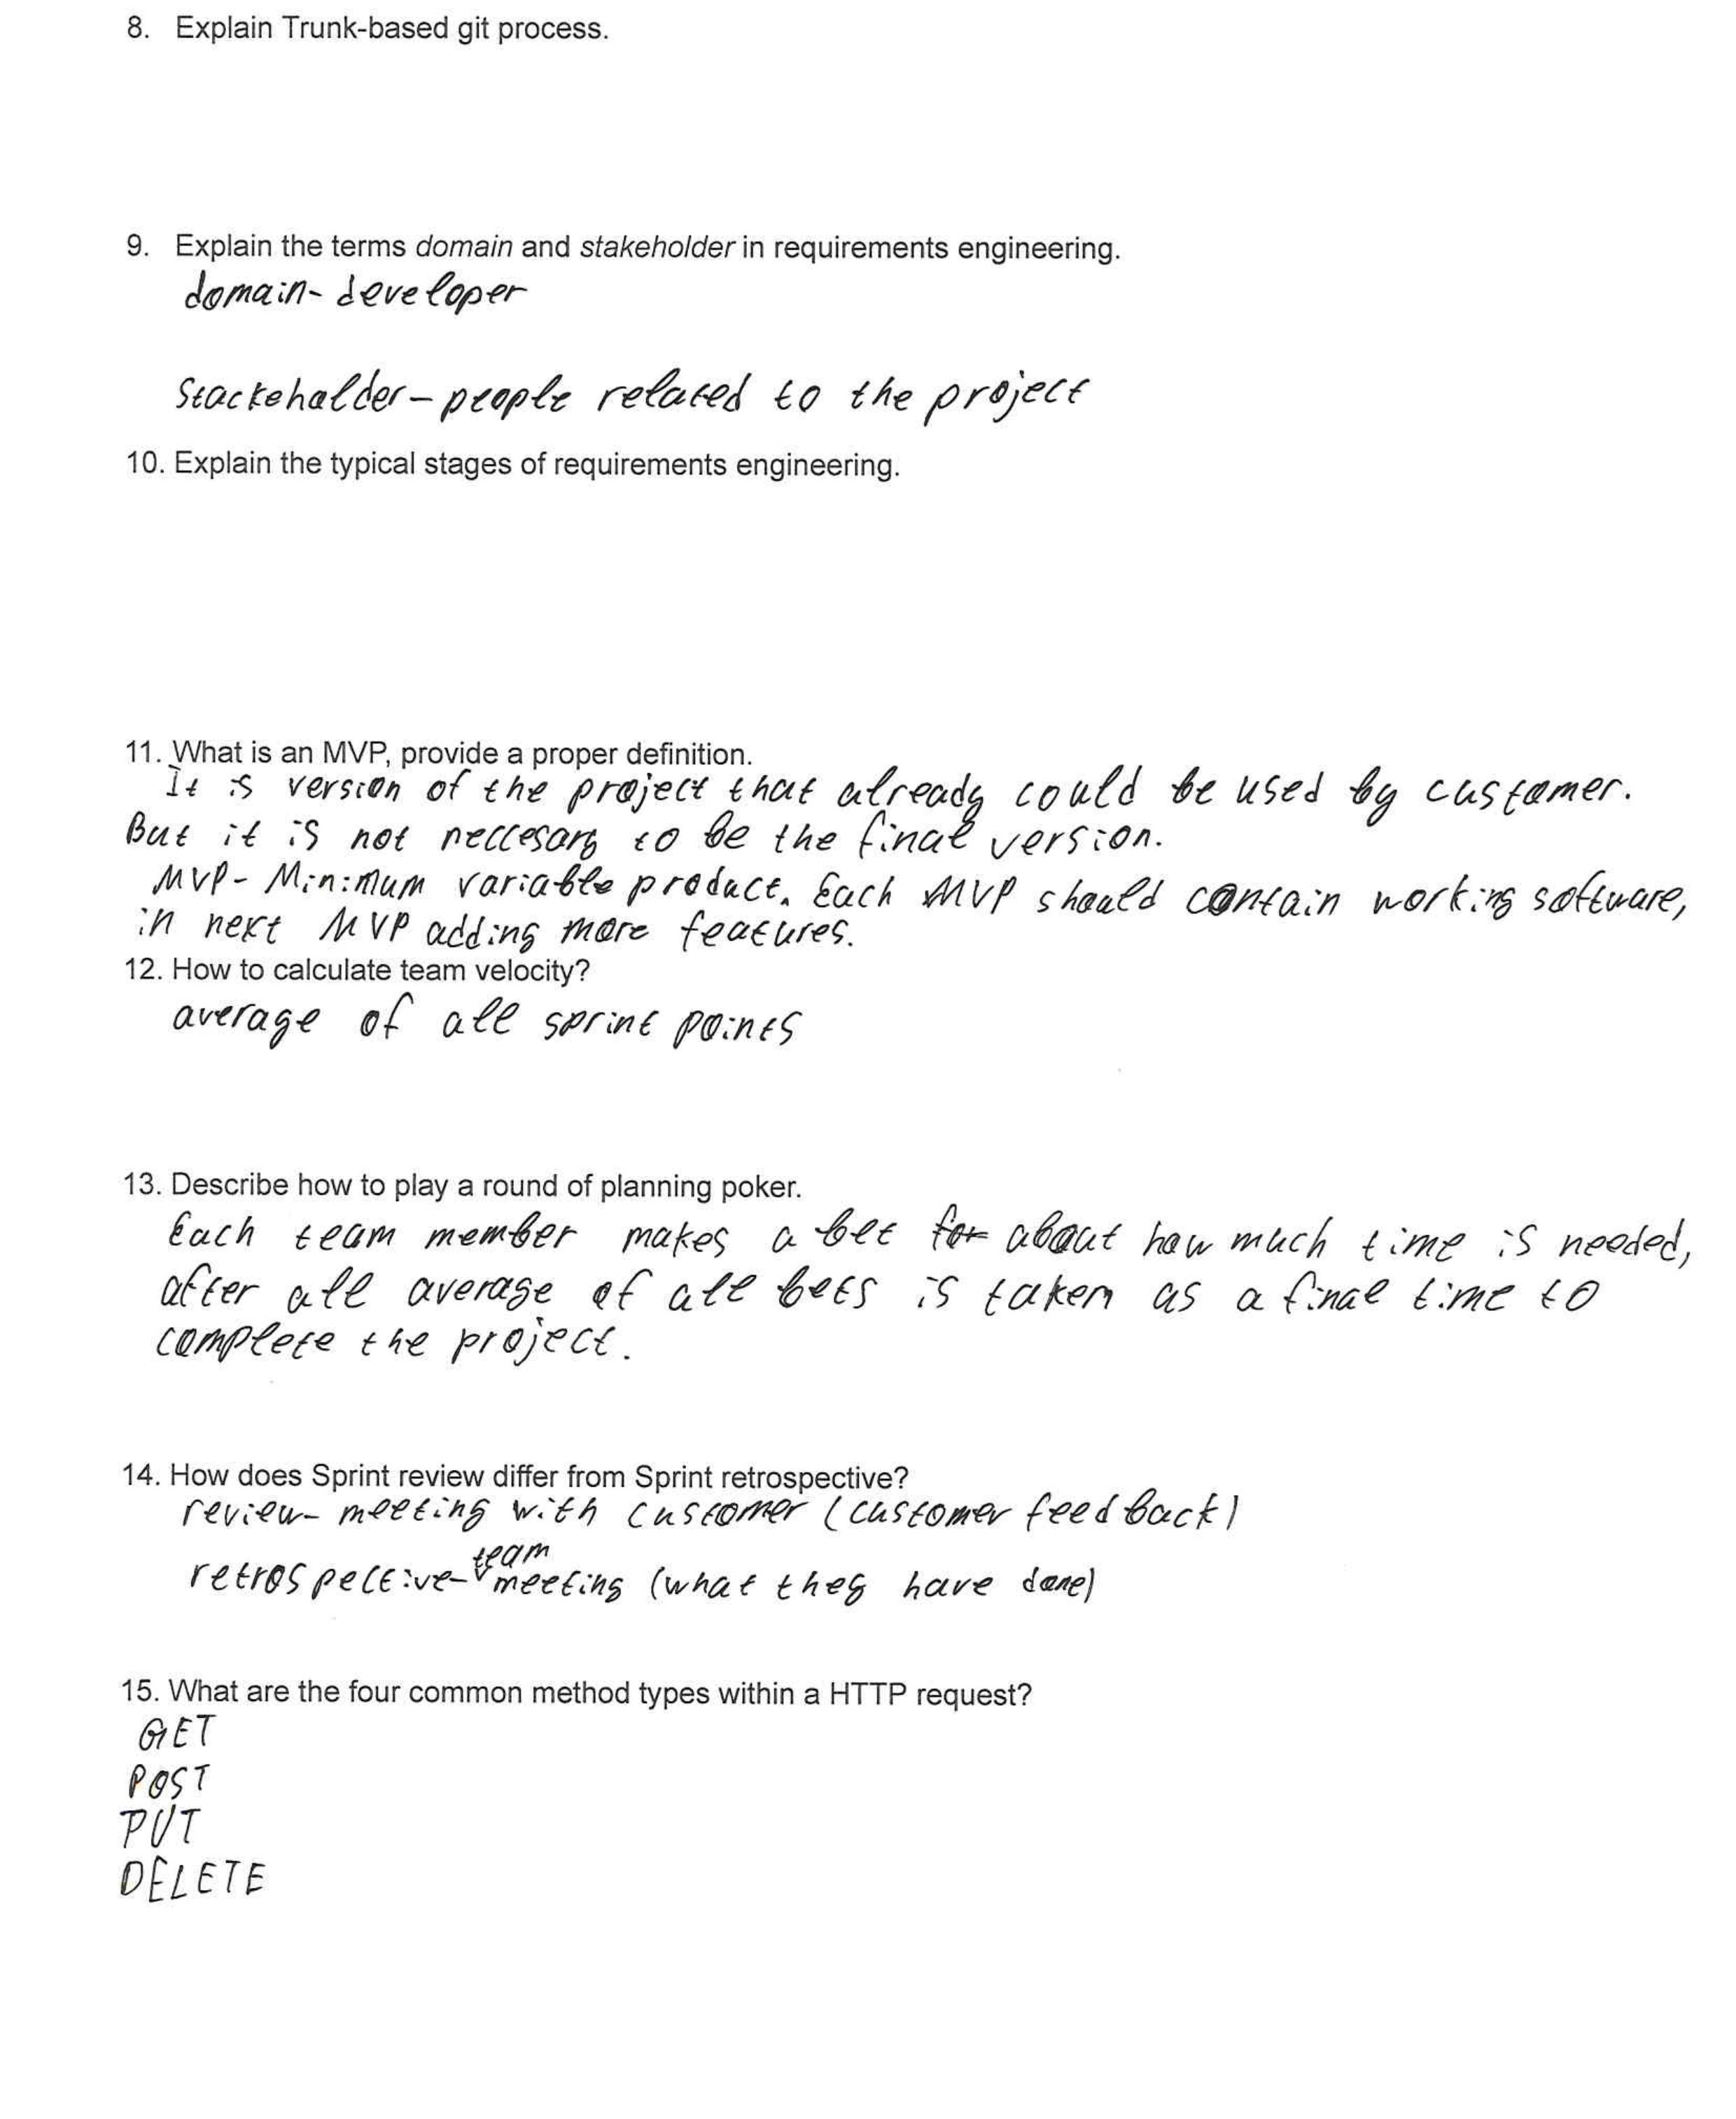 8. Explain Trunk-based git process.
9. Explain the terms domain and stakeholder in requirements engineering.
domain- developer
Stackehalder - people related to the project
10. Explain the typical stages of requirements engineering.
11. What is an MVP, provide a proper definition.
It is version of the project that already could be used by customer.
But it is not neccesary to be the final version.
MVP- Minimum variable product. Each MVP should contain working software,
in next MVP adding more features.
12. How to calculate team velocity?
average of all sprint points
13. Describe how to play a round of planning poker.
Each team member makes a bet for about how much time is needed,
after all average of all bets is taken as a final time to
complete the project.
14. How does Sprint review differ from Sprint retrospective?
review- meeting with customer (customer feedback)
retrospective- team meeting (what they have done)
15. What are the four common method types within a HTTP request?
GET
POST
PUT
DELETE